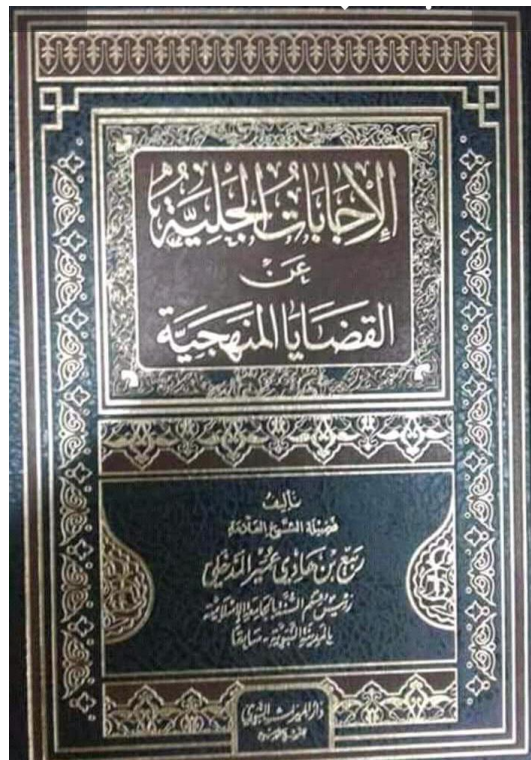 الإجابات الجلية
عَن
القضَايا المنهجيَّة
تأليف
فضيلة الشيخ العلامة
ربيع بن هادي عمير المدخلي
رئيس قسم السنة بالجامعة الإسلامية
بالمدينة النبوية - سابقا
دار الميراث النبوي